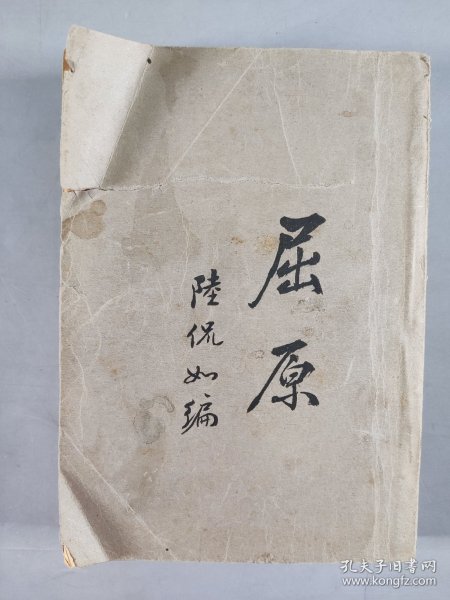 屈原
陸侃如编
孔夫子旧书网
www.kongfz.com